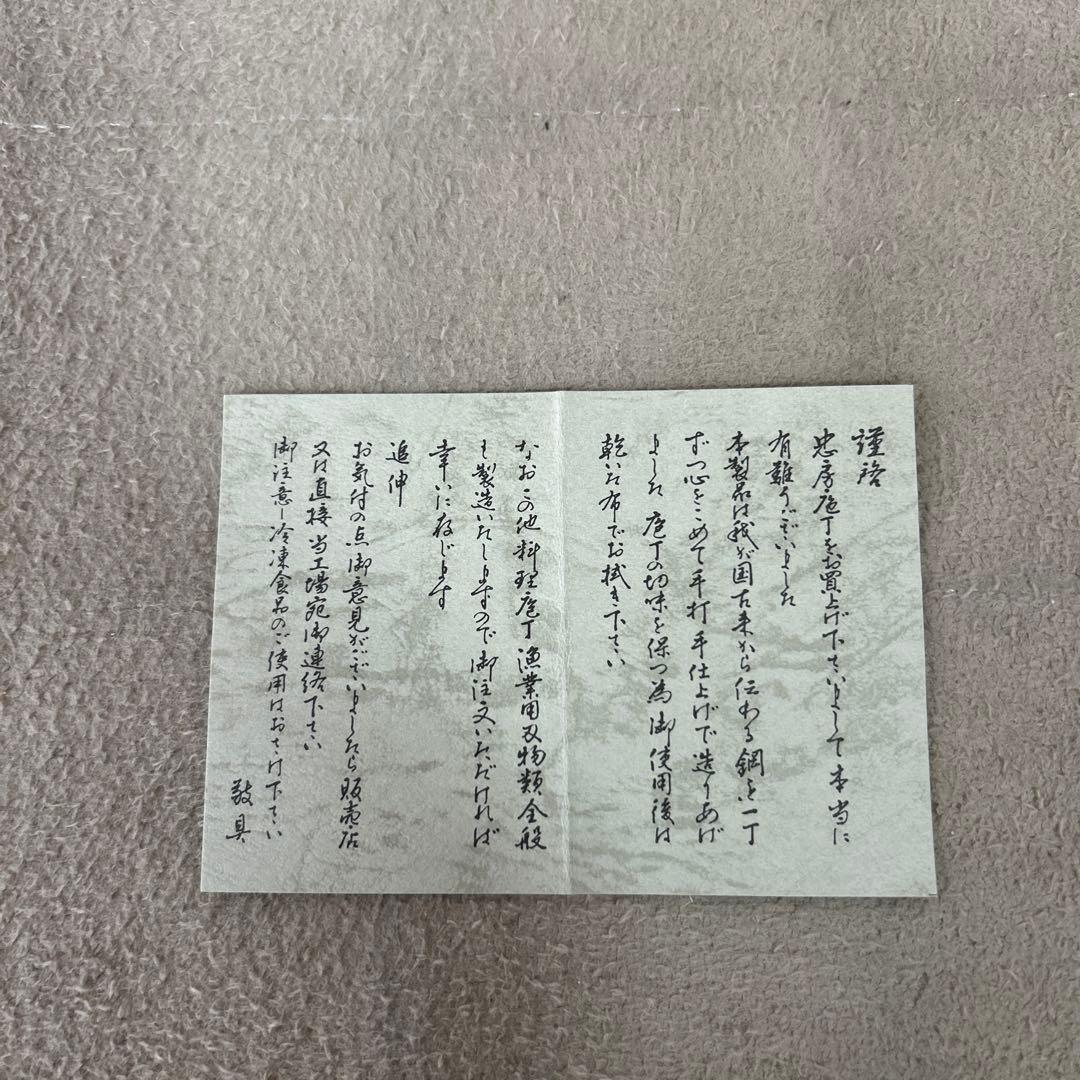 謹啓
忠房庖丁をお買上げ下さいまして本当に
有難うございました
本製品は我が国古来から伝わる鋼を一丁
ずつ心をこめて手打手仕上げで造りあげ
ました 庖丁の切味を保つ為御使用後は
乾いた布でお拭き下さい
なおこの他料理庖丁漁業用刃物類全般
も製造いたしますので御注文いただければ
幸いに存じます
追伸
お気付の点御意見がございましたら販売店
又は直接当工場宛御連絡下さい
御注意ー冷凍食品のご使用はおさけ下さい
敬具